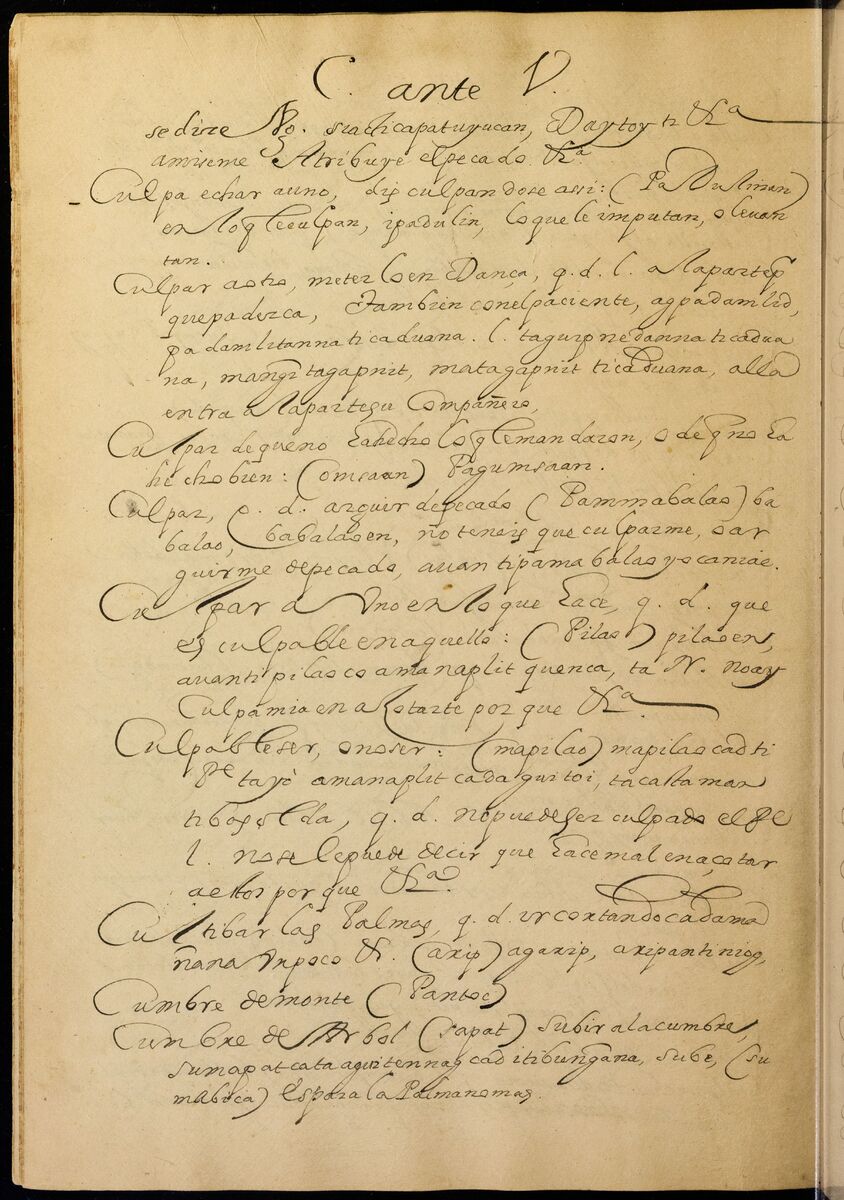 C. ante V.
se dize No. siachicapatuyucan, Daytoy ti &ª
amiseme Atribuye elpecado &ª.
Culpa echar auno, disculpandose assi: (PaDulinan)
en lo q̃ leculpan, ipadulin, loque le imputan, o levan
tan.
Culpar aotro, meter loen Dança, q. d. l. alaparteq̃
quepadezca, tambien conelpaciente, agpadamlid,
padamlitannaticaduana. l. taguipnedannaticadua
na, mangitagapnit, matagapnit ticaduana, alla
entra alapartesu Compañero,
Culpar dequeno Eahecho lo q̃ lemandaron, o de q̃ no Ea
hechobien: (omsaan) Pagumsaan.
Culpar, q. d. arguir depecado (Pammabalao) ba
balao, babalaoen, no teneis que culparme, o ar
guirme depecado, avantipamabalaoyocaniac.
Culpar a Vno en lo que Eace, q. d. que
es culpable enaquello: (Pilao) pilaoen,
avantipilaoco amanaplit quenca, ta N. noay
Culpamia en aSotarte por que &ª.
Culpable ser, onoser: (mapilao) mapilaocad ti
Pe tayo amanaplit cadaguitoi, tacastaman
tibasolda, q. d. nopuedeser culpado el Pe
l. nosele puede decir que Eacemal enaçotar
aestos por que &ª.
Cultibar las Palmas, q. d. ir cortandocadama
ñana Vnpoco &. (arip) agarip, aripantiniog,
Cumbre demonte (Pantoc)
Cumbre de Arbol (sapat) subir alacumbre,
sumapatcata aguitennag cad itibungana, sube, (su
mabica) Espara la Palmanomas.